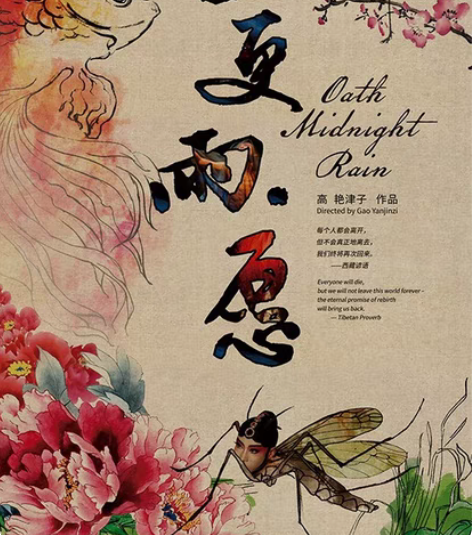 更
雨
愿
Oath
Midnight
Rain
高 艳津子 作品
Directed by Gao Yanjinzi
每个人都会离开，
但不会真正地离去，
我们终将再次回来。
——西藏谚语
Everyone will die,
but we will not leave this world forever -
the eternal promise of rebirth
will bring us back.
— Tibetan Proverb